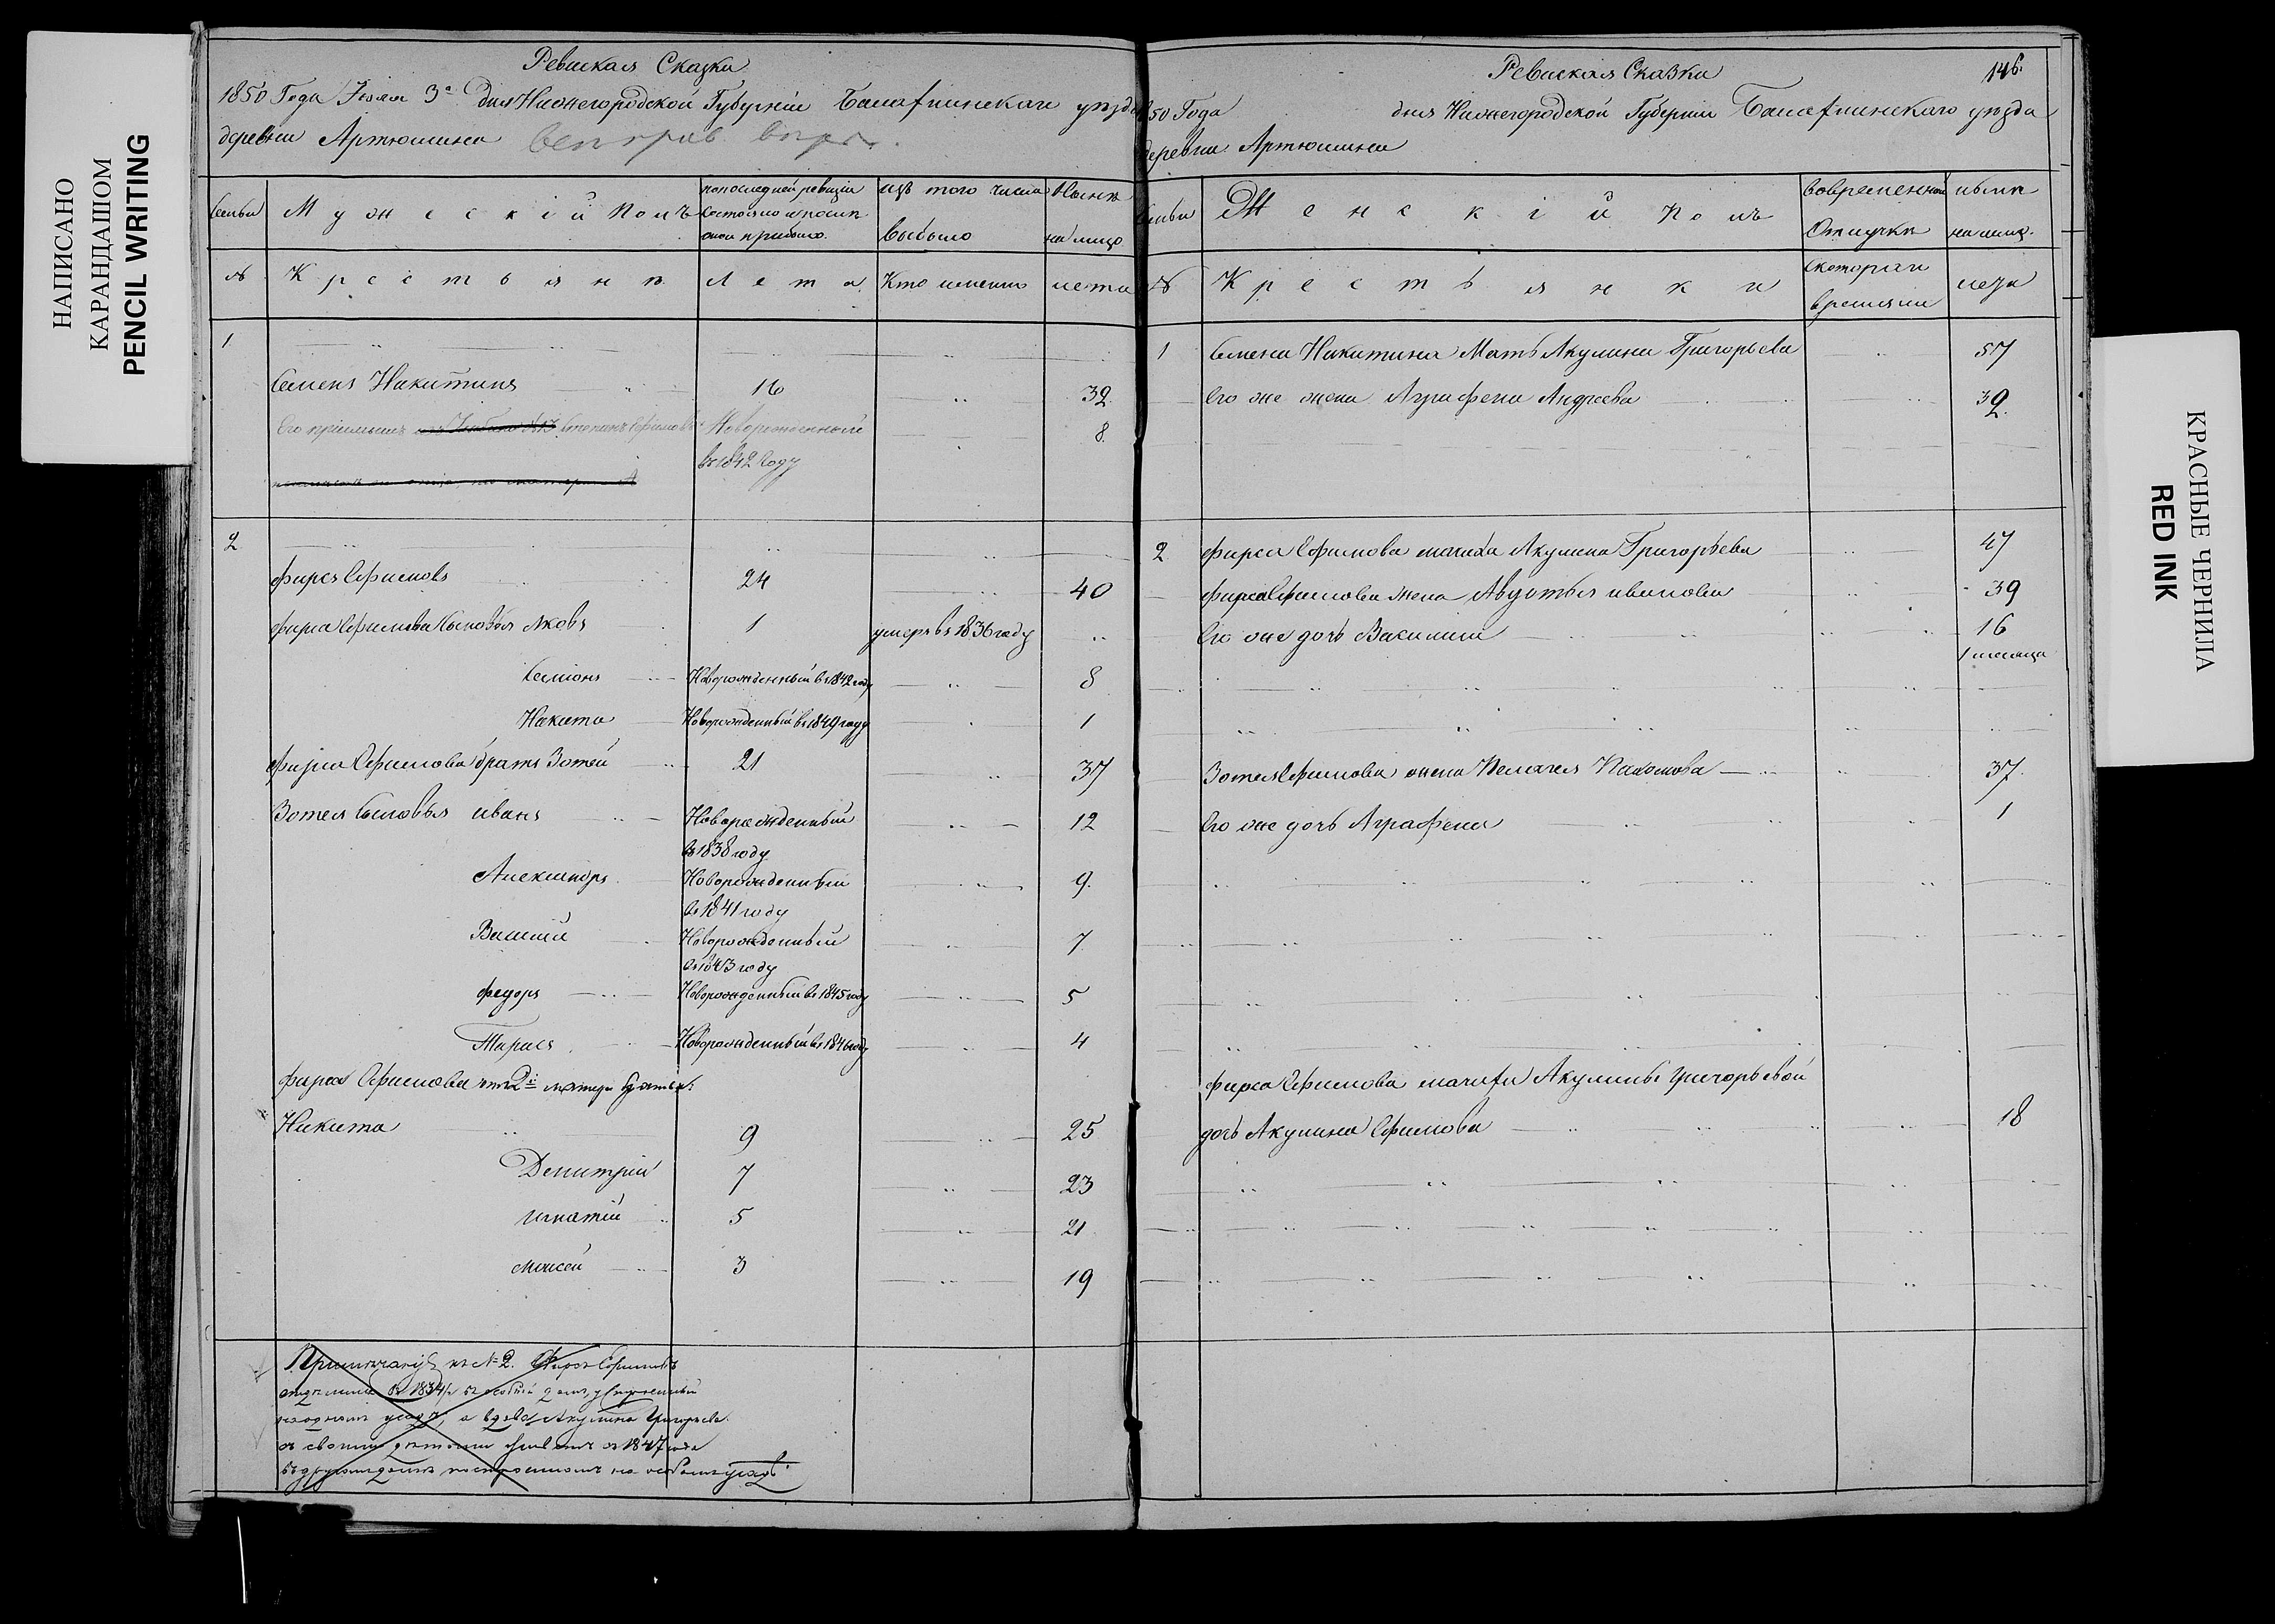 НАПИСАНО
КАРАНДАШОМ
PENCIL WRITING
Ревиская Сказка
1850 Года Июля 3го дня Нижегородской Губернiи Балахнинскаго уезда
деревни Артюшина
Семьи
Мужескiй полъ
по последней ревизiи состояло и после оной прибыло
изъ того числа выбыло
Ныне на лицо
№
Крестьяне
Лета
Кто именно
лета
1
Семенъ Никитинъ 16 32
Его прiемышъ Степанъ Ефимовъ Новорожденный 8
въ 1842 году
2
Фирсъ Ефимовъ 24 40
Фирса Ефимова сыновья Яковъ 1 умеръ въ 1836 году
Семіонъ Новорожденный въ 1842 году 8
Никита Новорожденный въ 1849 году 1
Фирса Ефимова братъ Зотей 21 37
Зотея сыновья иванъ Новорожденный 12
въ 1838 году
Александръ Новорожденный 9
въ 1841 году
Василий Новорожденный 7
въ 1843 году
Федоръ Новорожденный въ 1845 году 5
Тарасъ Новорожденный въ 1846 году 4
Фирса Ефимова отъ 2й матери братья:
Никита 9 25
Демитрiй 7 23
игнатiй 5 21
моисей 3 19
Примечанiе къ № 2. Фирсъ Ефимовъ
въ 1834 въ особый домъ
а вдова Акулина Григорьева
съ своими детьми живетъ съ 1847 года
Ревиская Сказка
146.
50 Года дня Нижегородской Губернiи Балахнинскаго уезда
деревни Артюшина
Семьи
Женскiй полъ
во временной отлучке
ныне на лицо
№
Крестьянки
с котораго времяни
лета
1 Семена Никитина Мать Акулина Григорьева 57
Его же жена Аграфена Андреева 32.
2 Фирса Ефимова мачиха Акулина Григорьева 47
Фирса Ефимова жена Авдотья иванова 39
Его же дочь Василиса 16
1 месяца
Зотея Ефимова жена Пелагея Пахомова 37.
Его же дочь Аграфена 1
Фирса Ефимова мачихи Акулины григорьевой
дочь Акулина Ефимова 18
КРАСНЫЕ ЧЕРНИЛА
RED INK